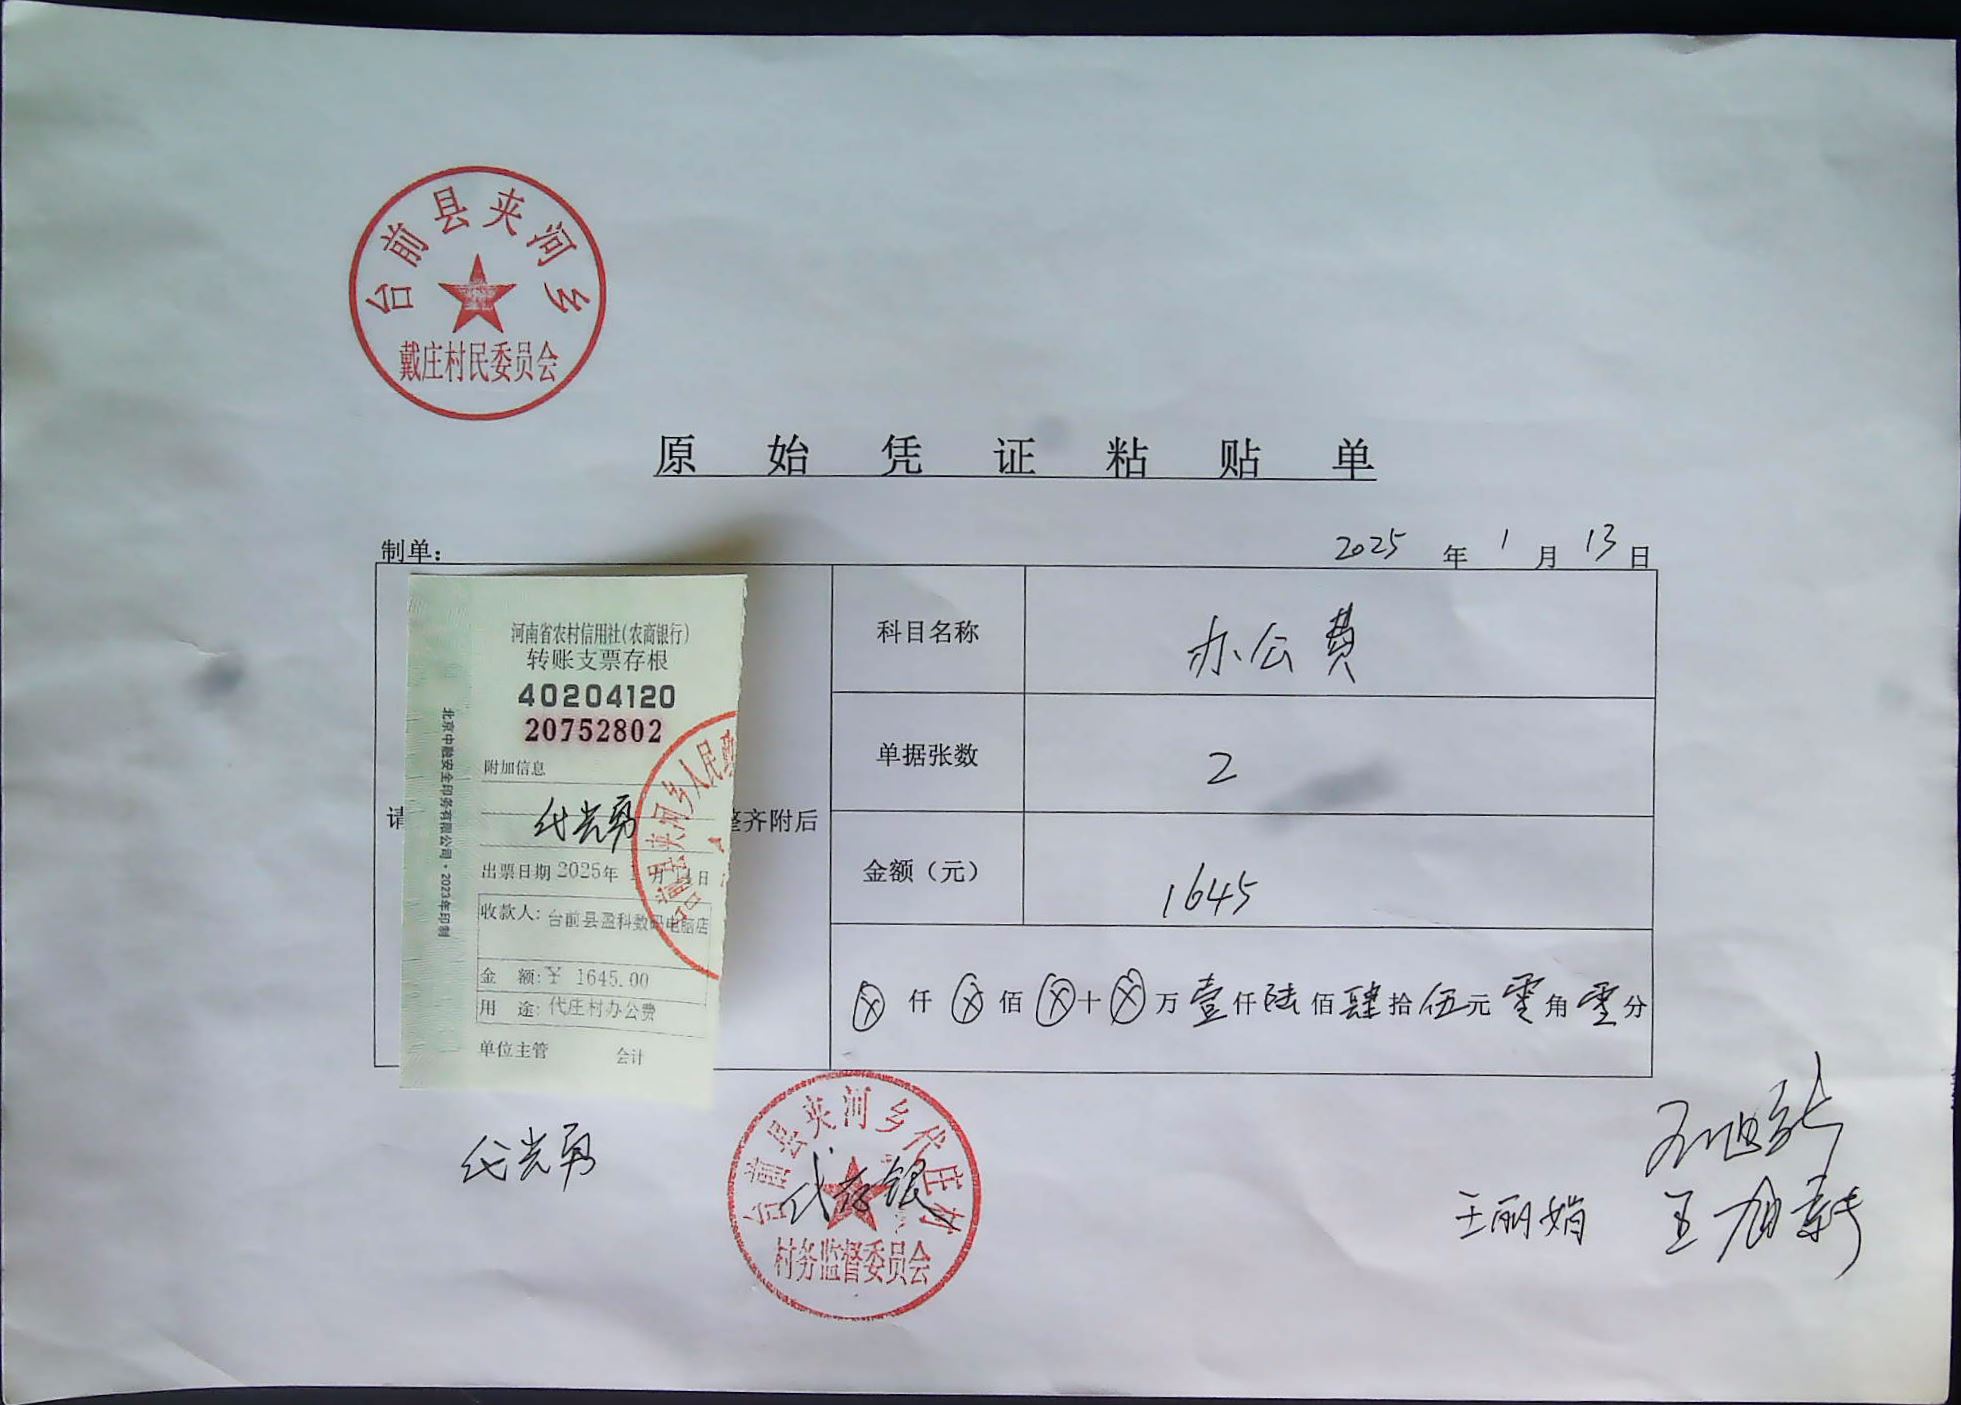 台前县夹河乡
戴庄村民委员会
原始凭证粘贴单
制单：
2025年1月13日
河南省农村信用社(农商银行)
转账支票存根
40204120
20752802
附加信息
代光勇
出票日期 2025年 月 日
收款人: 台前县盈科数码电脑店
金额:¥ 1645.00
用途: 代庄村办公费
单位主管 会计
北京中融安全印务有限公司·2023年印制
台前县夹河乡人民
请
整齐附后
科目名称 办公费
单据张数 2
金额（元） 1645
ⓧ仟ⓧ佰ⓧ十ⓧ万壹仟陆佰肆拾伍元零角零分
代光勇
台前县夹河乡代庄村
代存银
村务监督委员会
王丽娟